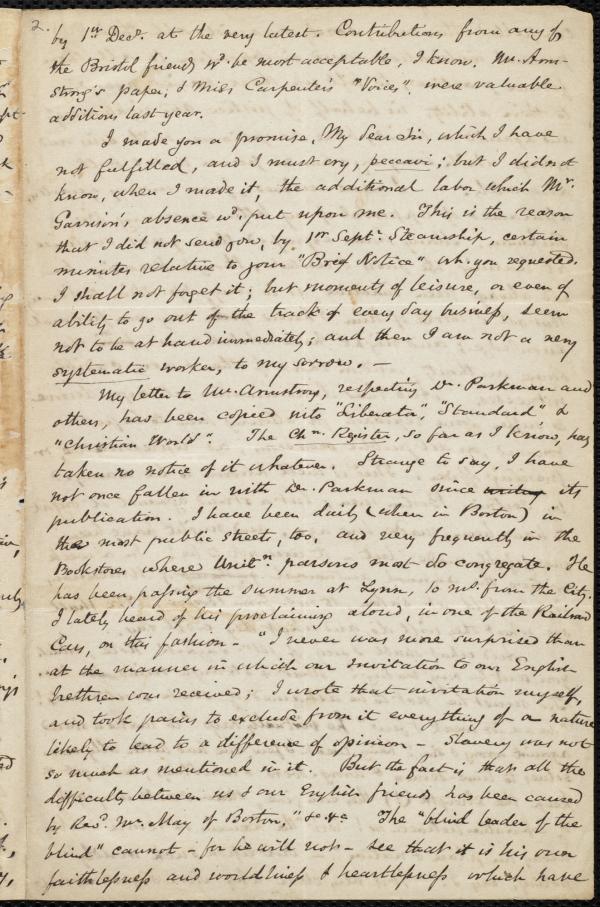 2.
by 1st Decr. at the very latest. Contributions from any of
the Bristol friends wd. be most acceptable, I know. Mr. Arm-
strong's paper, & Miss Carpenter's "Voices", were valuable
additions last year.
I made you a promise, My dear Sir, which I have
not fulfilled, and I must cry, peccavi; but I did not
know, when I made it, the additional labor which Mr.
Garrison's absence wd. put upon me. This is the reason
that I did not send you, by 1st Sept. Steamship, certain
minutes relative to your "Brief Notice" wh. you requested.
I shall not forget it; but moments of leisure, or even of
ability to go out of the track of every day business, seem
not to be at hand immediately; and then I am not a very
systematic worker, to my sorrow. —
My letter to Mr. Armstrong, respecting Dr. Parkman and
others, has been copied into "Liberator", "Standard" &
"Christian World". The Chn. Register, so far as I know, has
taken no notice of it whatever. Strange to say, I have
not once fallen in with Dr. Parkman since writing its
publication. I have been daily (when in Boston) in
the most public streets, too, and very frequently in the
Bookstores where Unitn. parsons most do congregate. He
has been passing the summer at Lynn, 10 ms. from the City.
I lately heard of his proclaiming aloud, in one of the Railroad
Cars, on this fashion – "I never was more surprised than
at the manner in which our Invitation to our English
brethren was received; I wrote that invitation myself,
and took pains to exclude from it everything of a nature
likely to lead to a difference of opinion – Slavery was not
so much as mentioned in it. But the fact is that all the
difficulty between us & our English friends has been caused
by Revd. Mr. May of Boston," &c &c The "blind leader of the
blind" cannot – for he will not – see that it is his own
faithlessness and worldliness & heartlessness which have